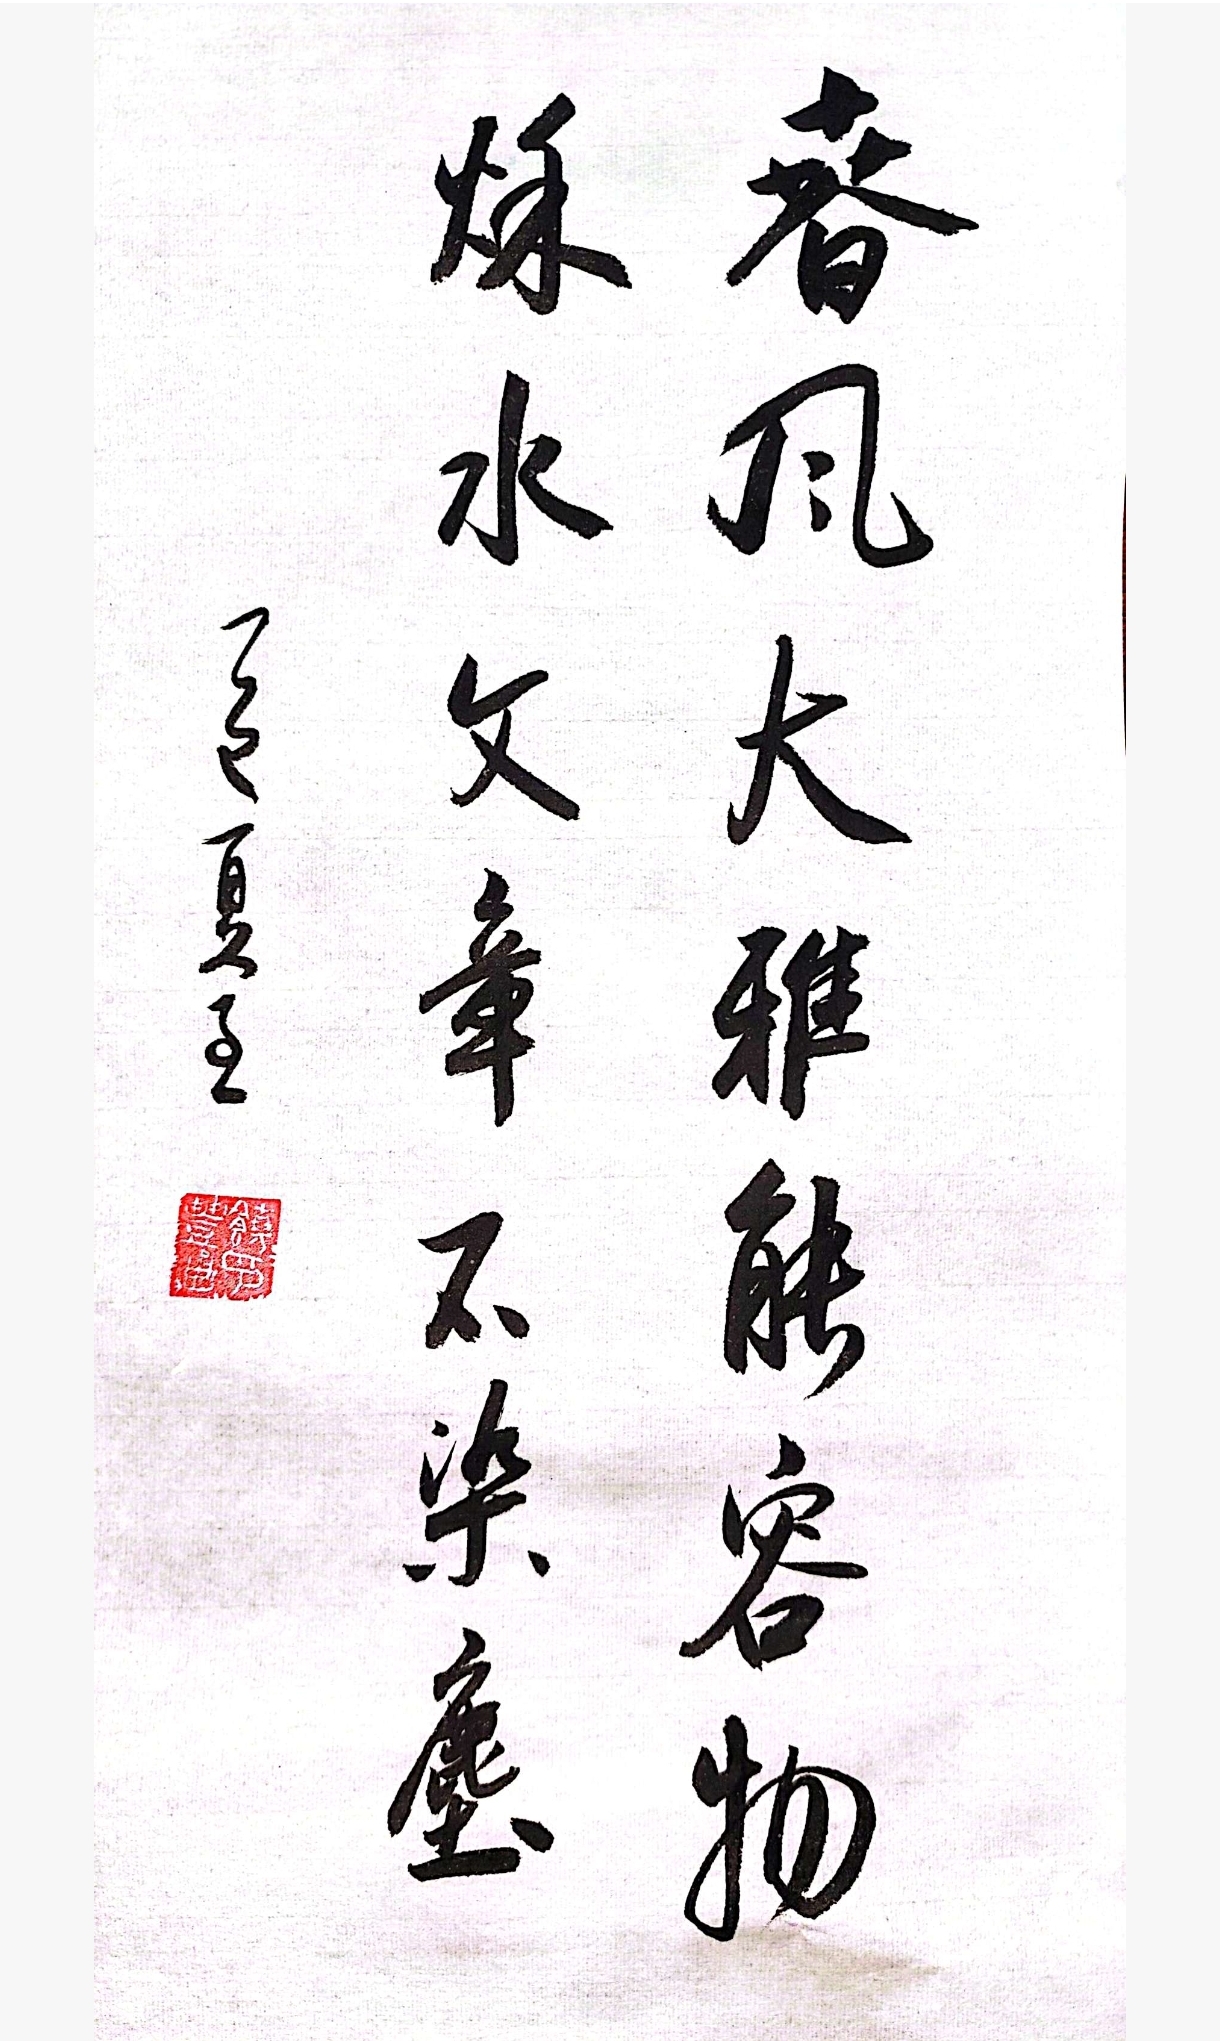 春风大雅能容物
秌水文章不染塵
乙巳夏至